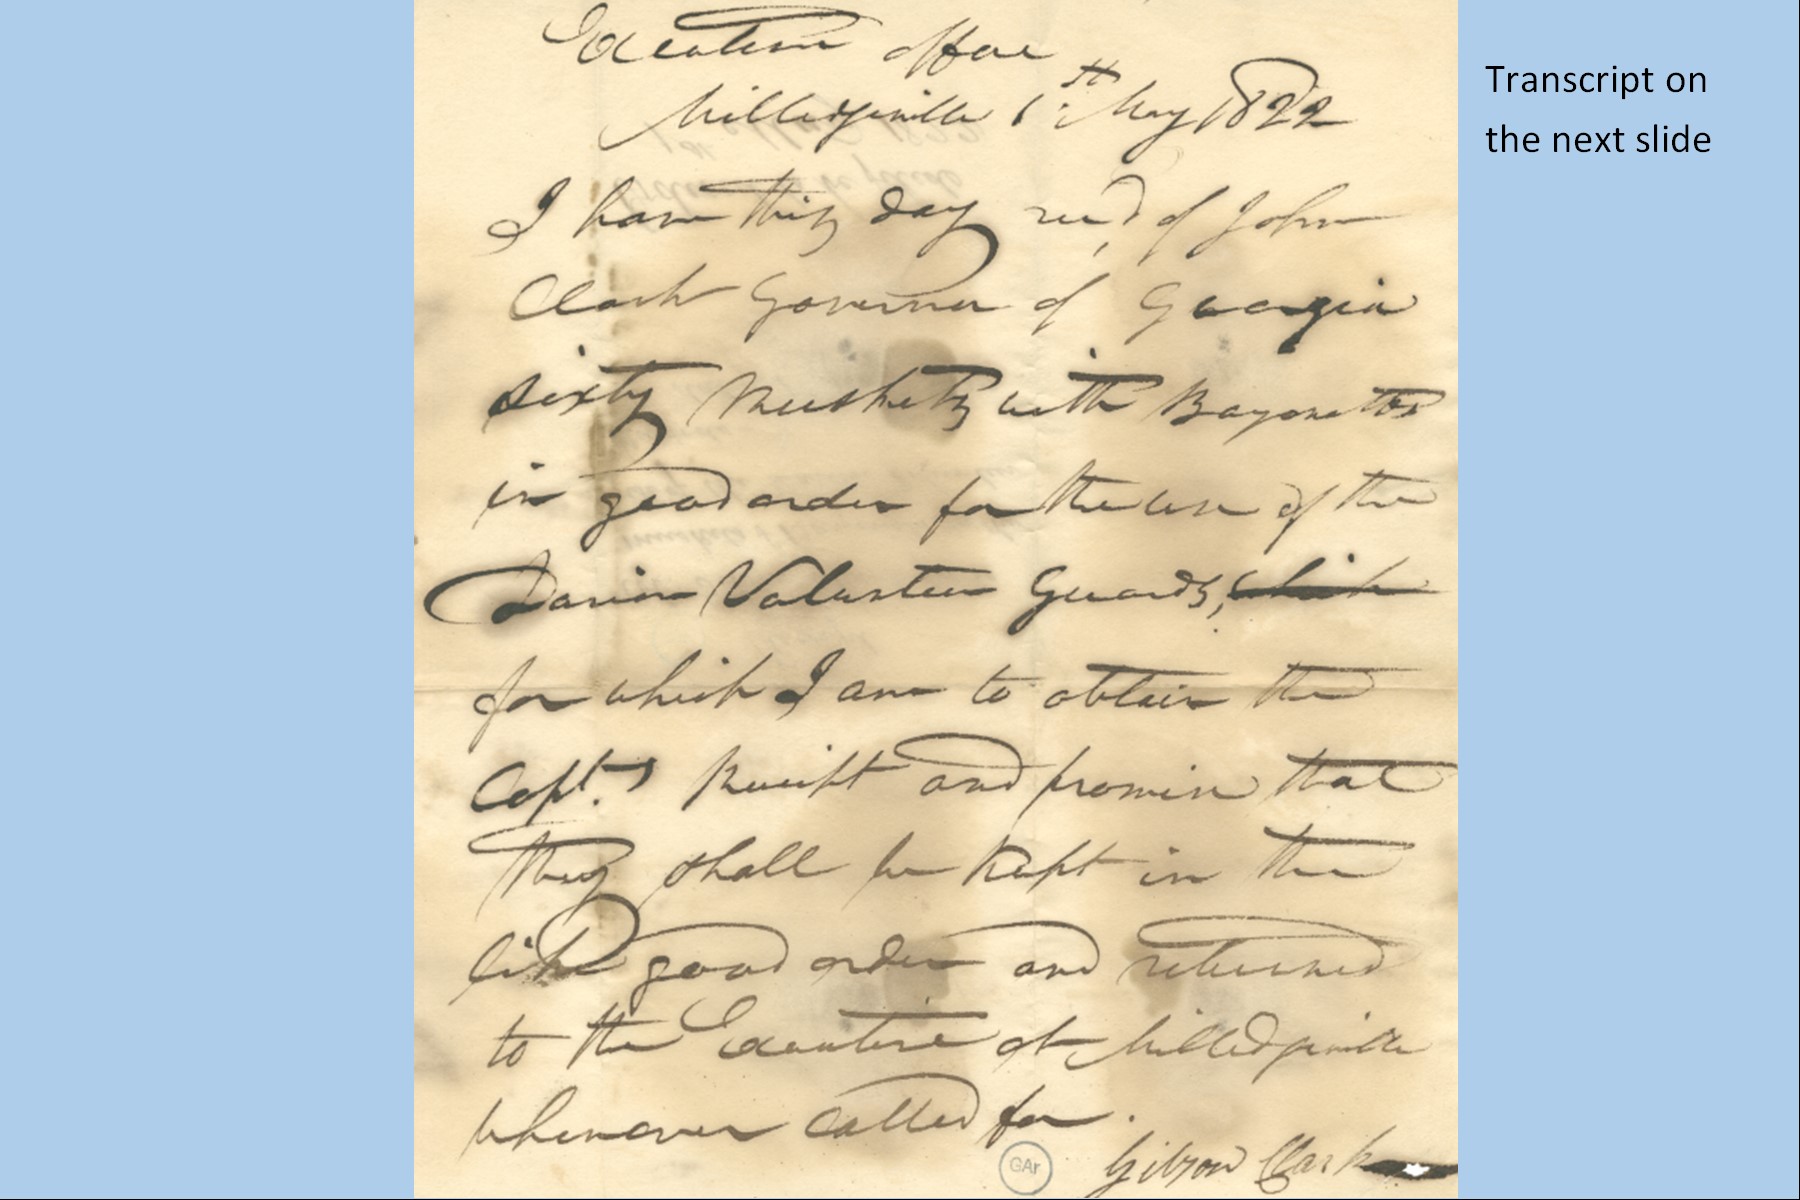 Executive office
Milledgeville 1st May 1822
I have this day recd, of John
Clark Governor of Georgia
sixty Muskets with Bayonetts
in good order for the use of the
Darien Volunteer Guards, which
for which I am to obtain the
Capt.s Receipt and promise that
they shall be kept in the
like good order and returned
to the Executive at Milledgeville
whenever called for.
Gibson Clark
GAr
Transcript on
the next slide